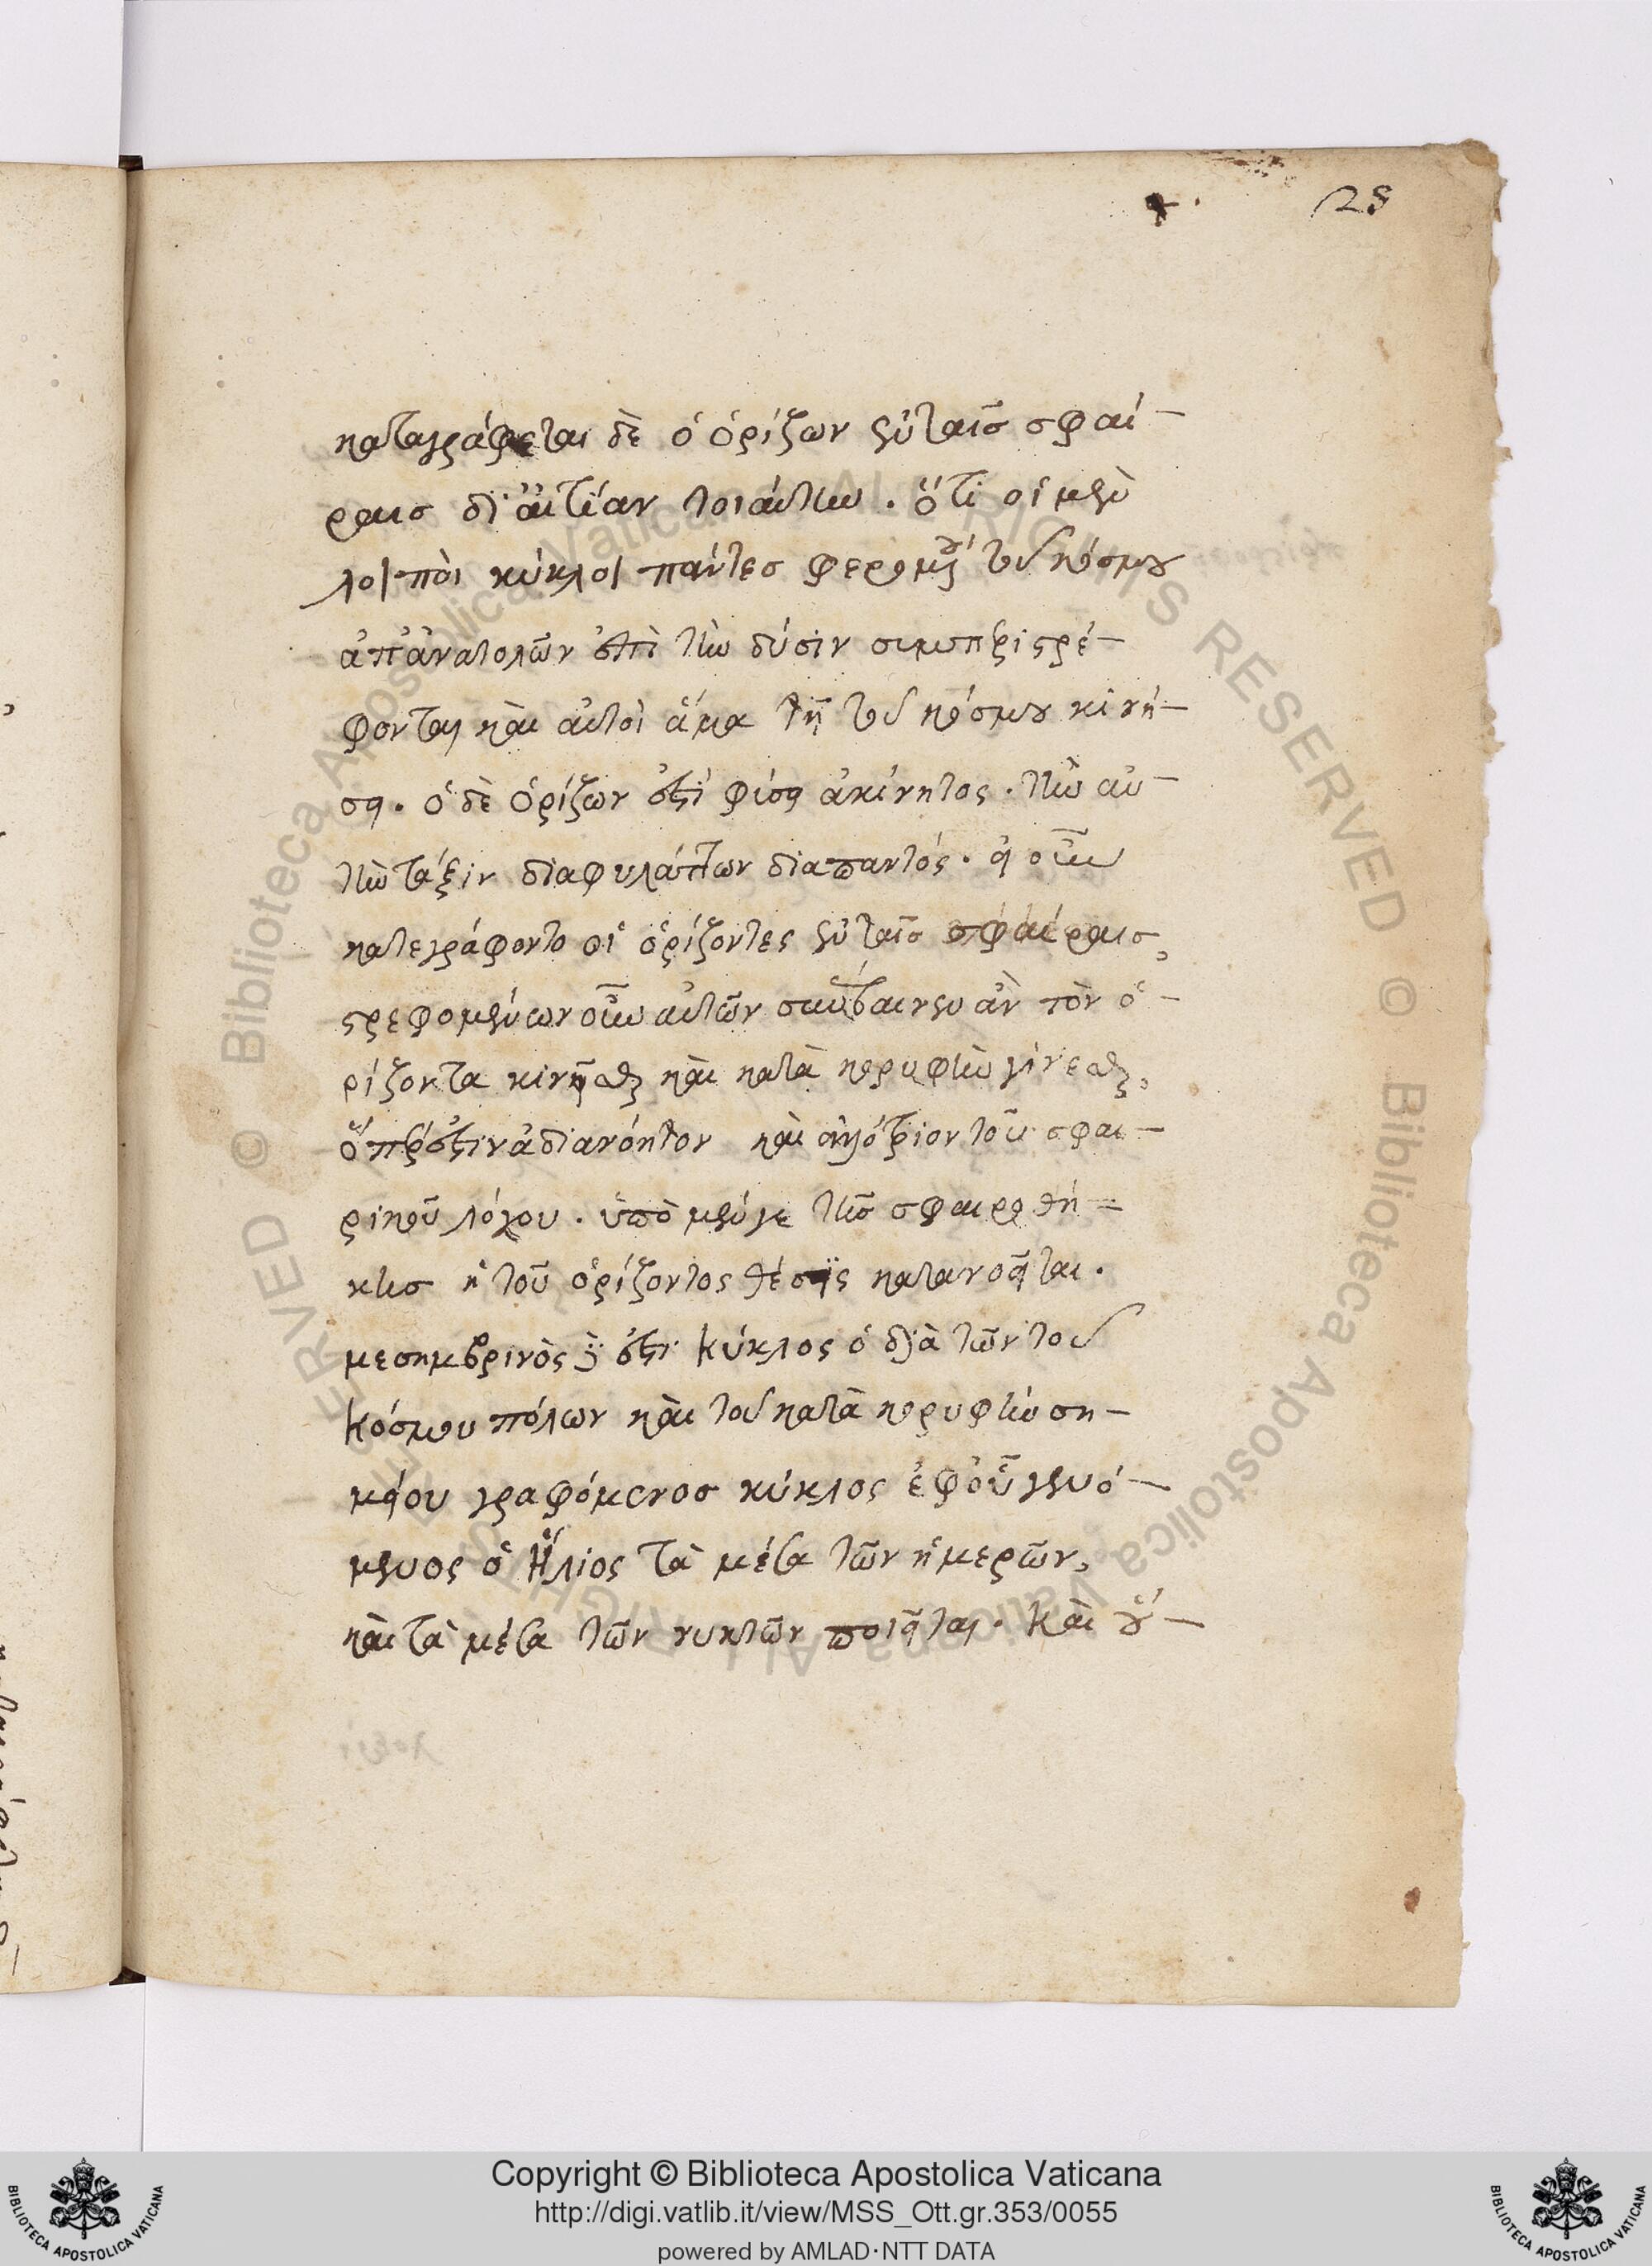 28
καταγράφεται δὲ ὁ ὁρίζων ἐν ταῖσ σφαί-
ραισ δι' αἰτίαν τοιαύτην. ὅτι οἱ μὲν
λοιποὶ κύκλοι πάντεσ φερομένου τοῦ κόσμου
ἀπ' ἀνατολῶν ἐπὶ τὴν δύσιν συμπεριστρέ-
φονται καὶ αὐτοὶ ἅμα τῇ τοῦ κόσμου κινή-
σει. ὁ δὲ ὁρίζων ἐστὶ φύσει ἀκίνητος. τὴν αὐ-
τὴν τάξιν διαφυλάττων διαπαντός. εἰ οὖν
κατεγράφοντο οἱ ὁρίζοντες ἐν ταῖσ σφαίραισ,
στρεφομένων οὖν αὐτῶν συνέβαινεν ἂν τὸν ὁ-
ρίζοντα κινεῖσθαι καὶ κατὰ κορυφὴν γίνεσθαι,
ὅπερ ἐστὶν ἀδιανόητον καὶ ἀλλότριον τοῦ σφαι-
ρικοῦ λόγου. ὑπὸ μέν γε τῆσ σφαιροθή-
κησ ἡ τοῦ ὁρίζοντος θέσις κατανοεῖται.
μεσημβρινὸς δέ ἐστι κύκλος ὁ διὰ τῶν τοῦ
κόσμου πόλων καὶ τοῦ κατὰ κορυφὴν ση-
μείου γραφόμενοσ κύκλος ἐφ' οὗ γενό-
μενος ὁ Ἥλιος τὰ μέσα τῶν ἡμερῶν,
καὶ τὰ μέσα τῶν νυκτῶν ποιεῖται. καὶ οὗ-
Copyright © Biblioteca Apostolica Vaticana
http://digi.vatlib.it/view/MSS_Ott.gr.353/0055
powered by AMLAD·NTT DATA
BIBLIOTECA APOSTOLICA VATICANA
BIBLIOTECA APOSTOLICA VATICANA